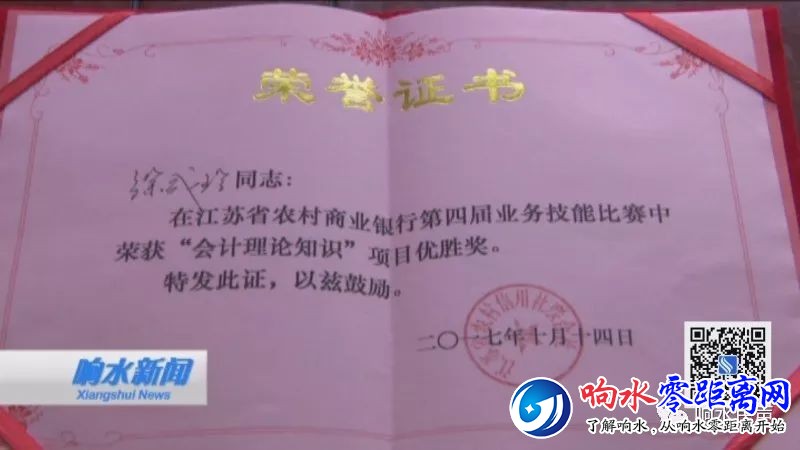 荣誉证书
同志：
在江苏省农村商业银行第四届业务技能比赛中
荣获“会计理论知识”项目优胜奖。
特发此证，以兹鼓励。
二〇一七年十月十四日
响水新闻
Xiangshui News
响水零距离网
了解响水，从响水零距离开始